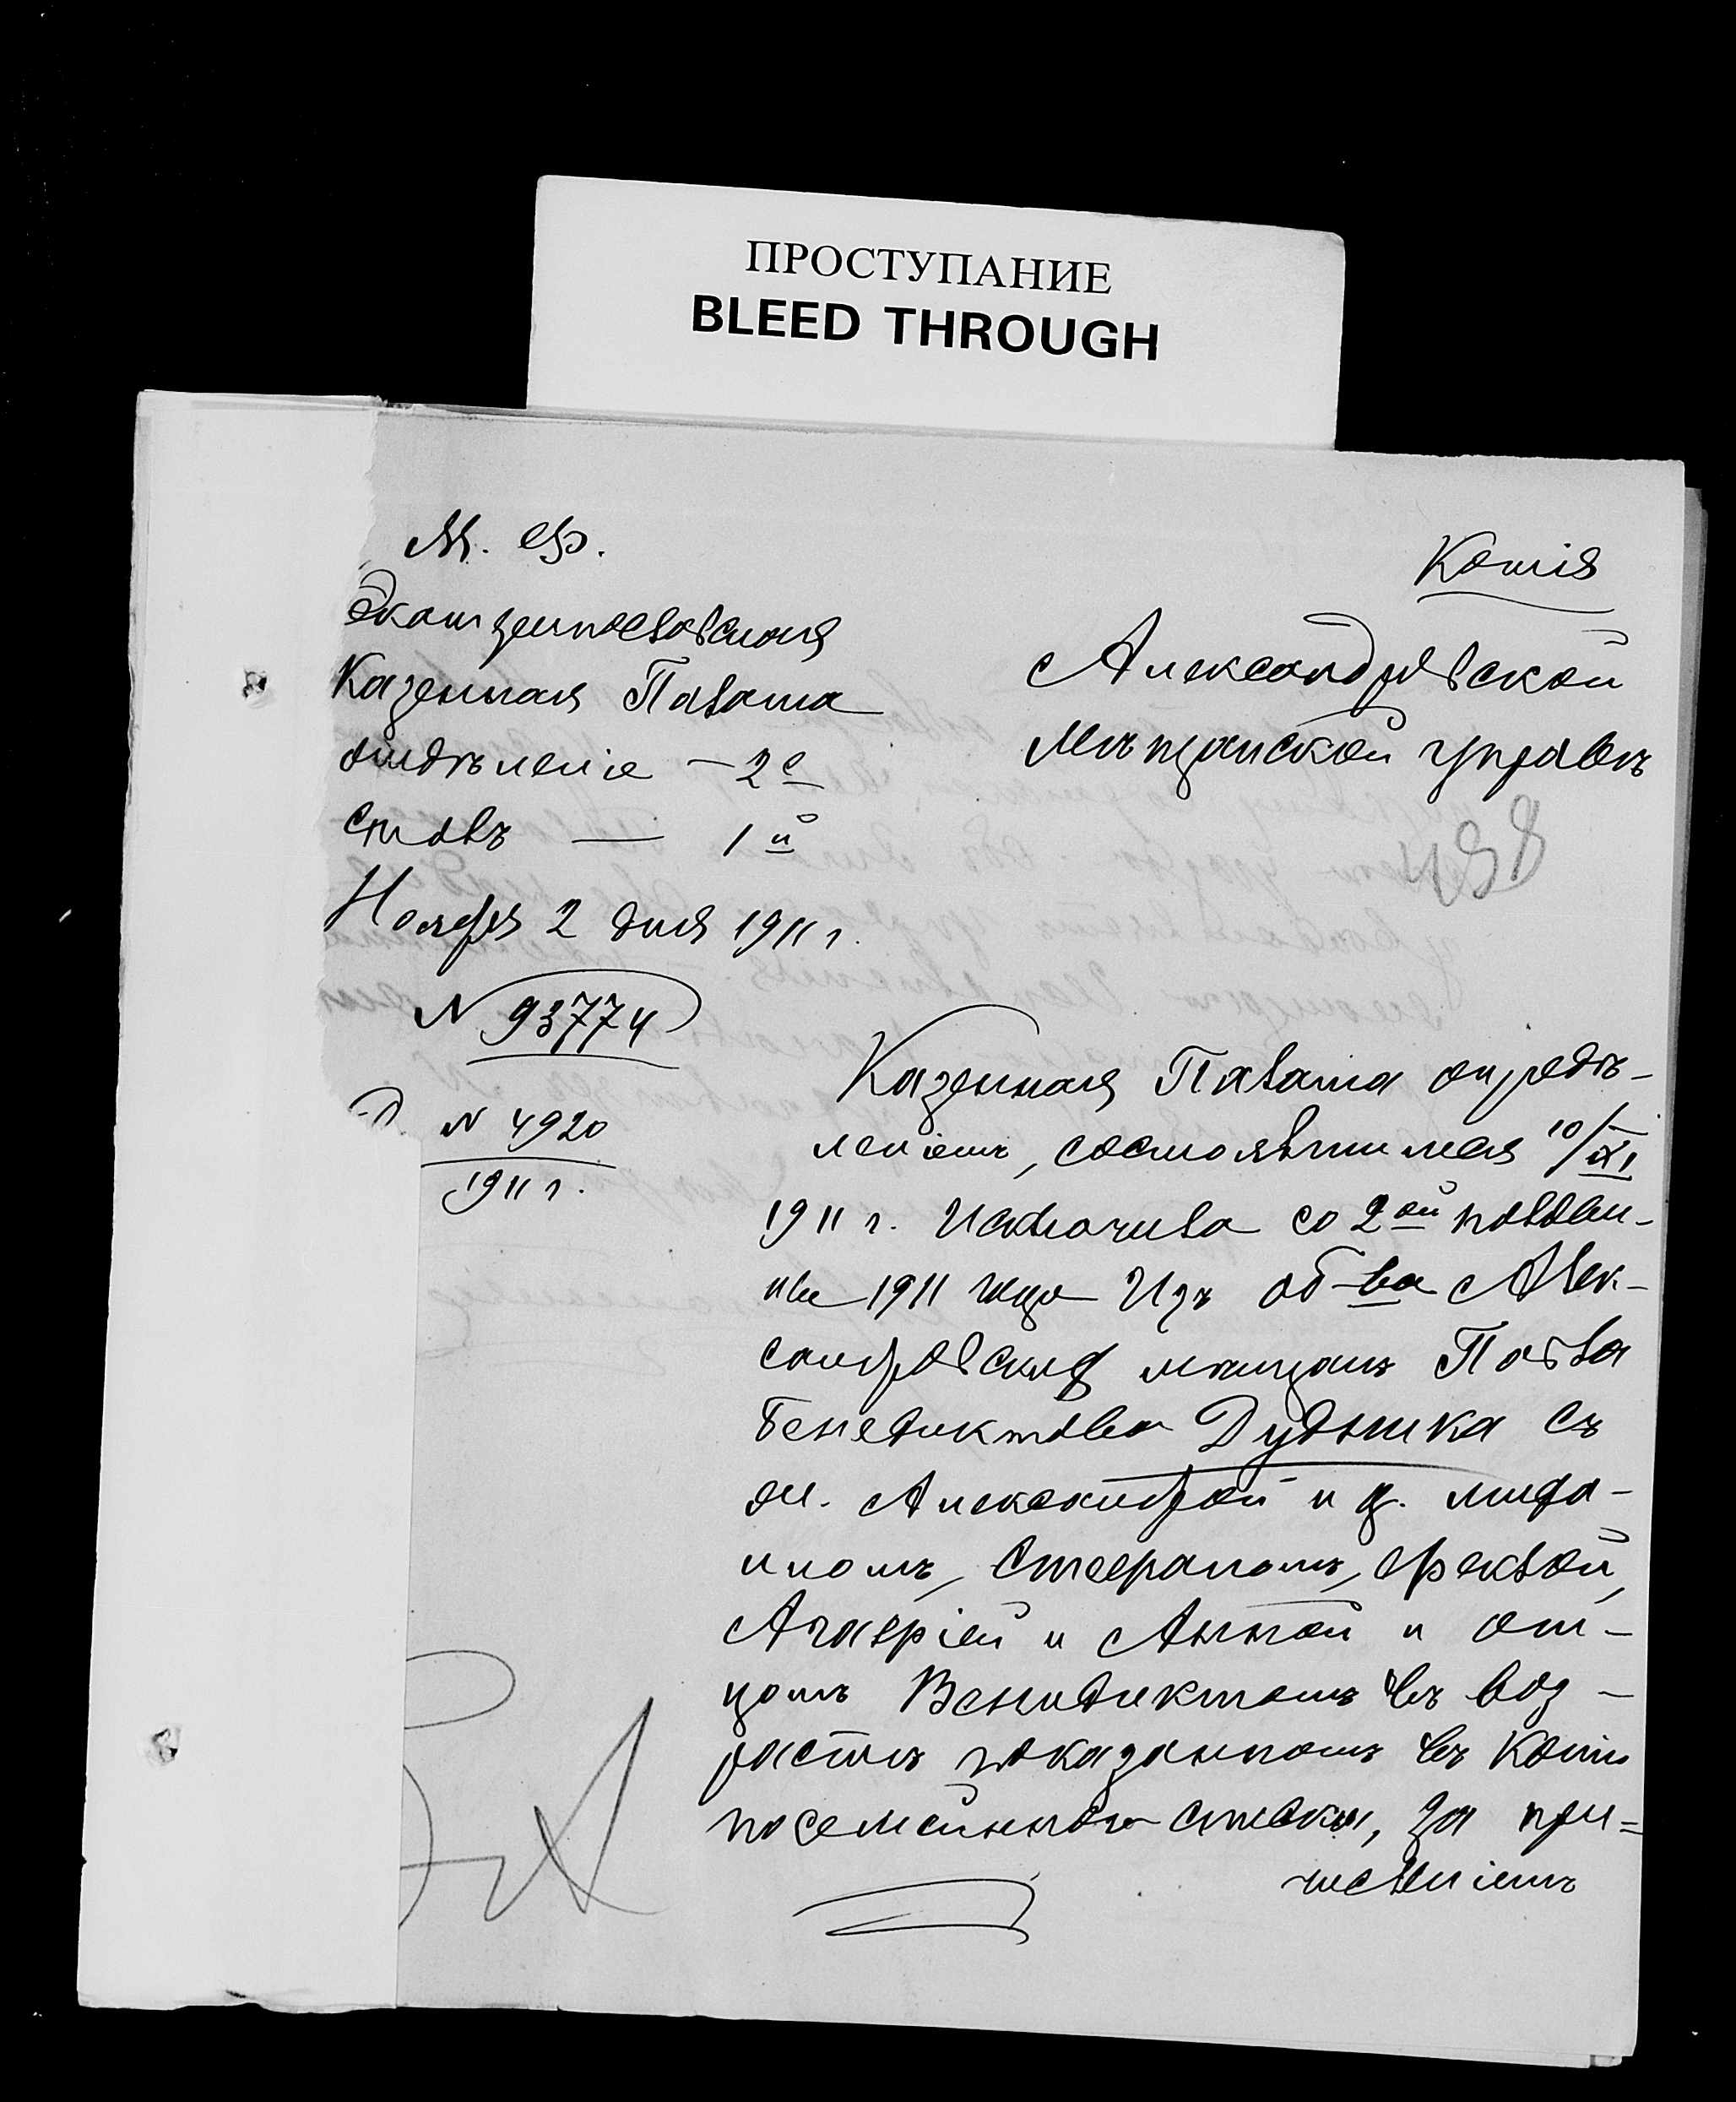 ПРОСТУПАНИЕ
BLEED THROUGH
М. Ф.
Екатеринославская
Казенная Палата
отдѣленіе – 2е
столъ — 1й
Ноября 2 дня 1911 г.
N 93774
Д. N 4920
1911 г.
Копія
Александровской
Мѣщанской Управѣ
498
Казенная Палата опредѣ-
леніемъ, состоявшимся 10/XI
1911 г. исключила со 2ой полови-
ны 1911 года изъ об-ва Алек-
сандровскихъ мѣщанъ Павла
Бенедиктова Дудника съ
ж. Александрой и д.
Стефаномъ, Феклой,
Агафіей и Анной и от-
цомъ Венидиктомъ въ воз-
растѣ показанномъ въ копіи
посемейнаго списка, за при-
численіемъ